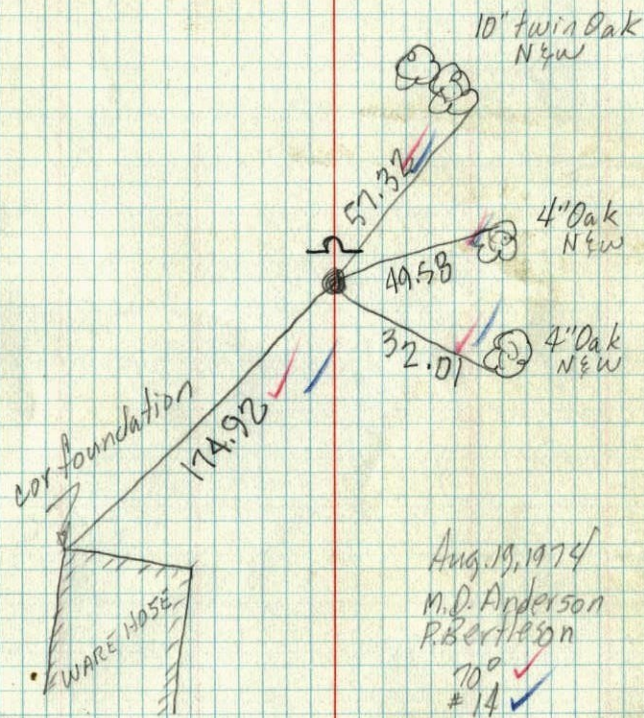 10" twin Oak
N&W
57.32
4" Oak
N&W
49.58
32.01
4" Oak
N&W
174.92
cor foundation
WARE HOSE
Aug. 19, 1974
M.D. Anderson
P. Bertleson
70°
#14